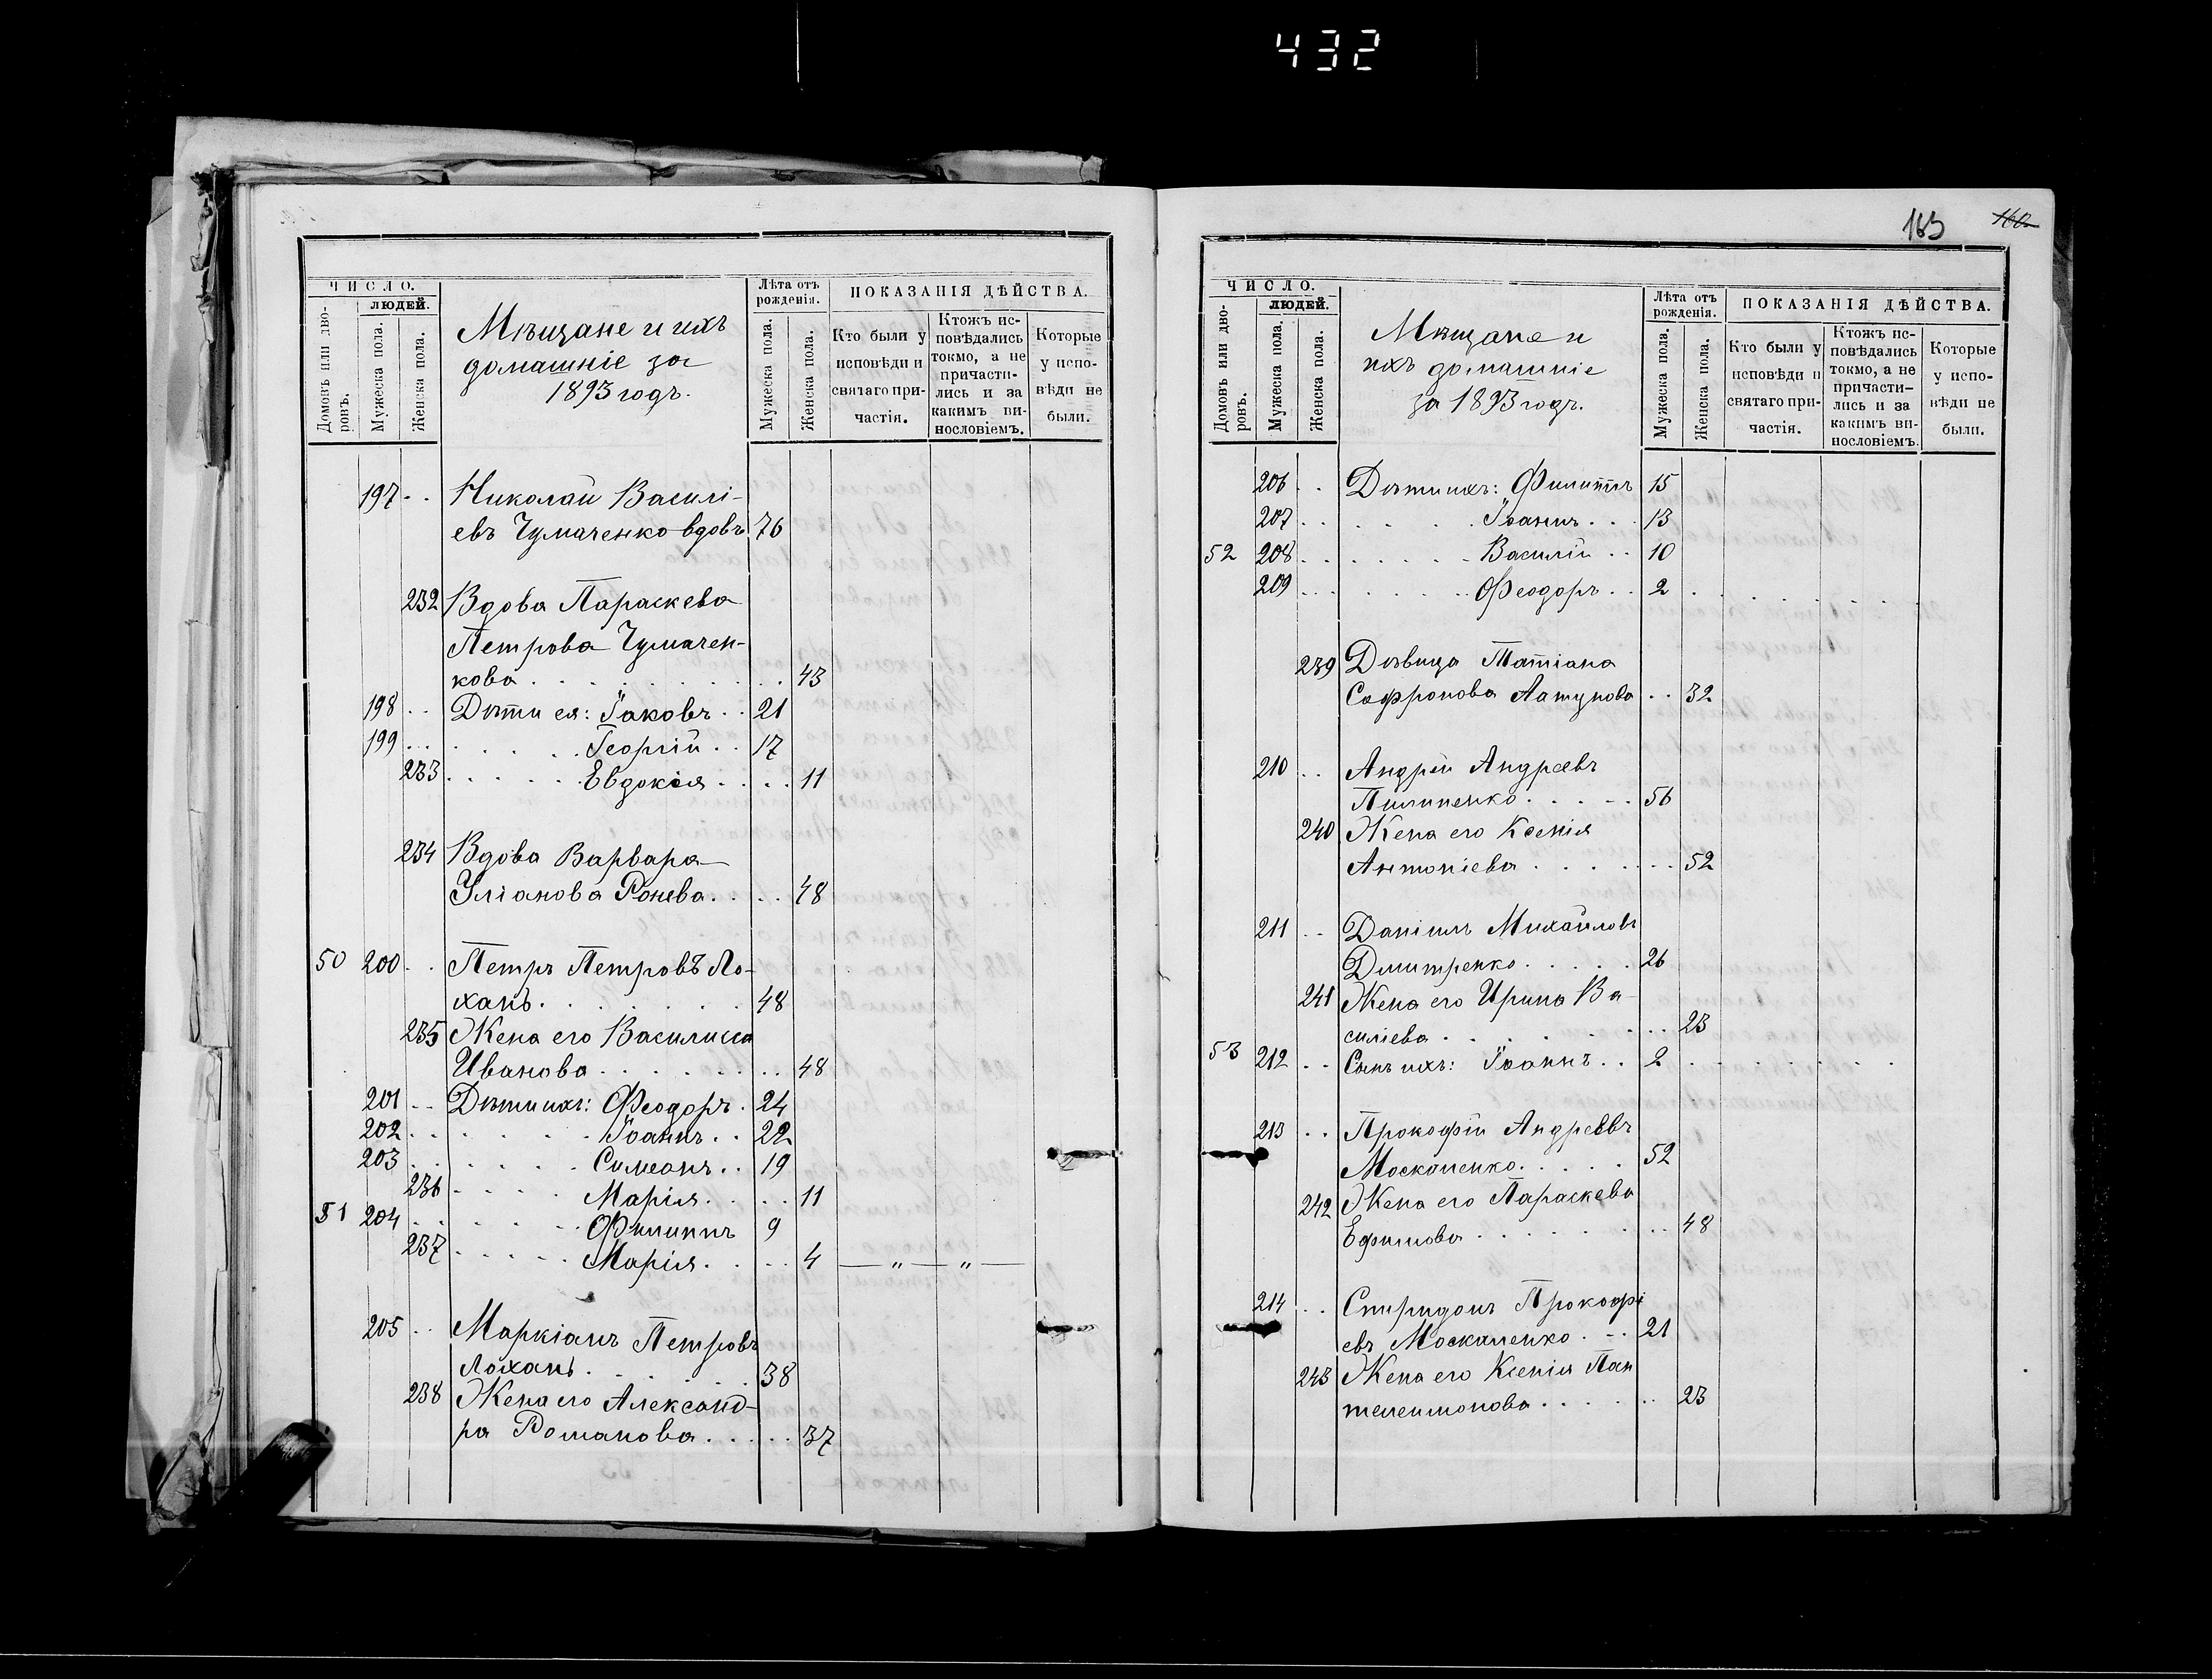 432
ЧИСЛО.
ЛЮДЕЙ.
Домовъ или дво-
ровъ.
Мужеска пола.
Женска пола.
Мѣщане и ихъ
домашніе за
1893 годъ.
Лѣта отъ
рожденія.
Мужеска пола.
Женска пола.
ПОКАЗАНІЯ ДѢЙСТВА.
Кто были у
исповѣди и
святаго при-
частія.
Ктожъ ис-
повѣдались
токмо, а не
причасти-
лись и за
какимъ ви-
нословіемъ.
Которые
у испо-
вѣди не
были.
197 Николай Василі-
евъ Чумаченко вдовъ 76
232 Вдова Параскева
Петрова Чумачен-
кова 43
198 Дѣти ея: Іаковъ 21
199 Георгій 17
233 Евдокія 11
234 Вдова Варвара
Уліанова Ронева 48
50 200 Петръ Петровъ Ло-
ханъ 48
235 Жена его Василисса
Иванова 48
201 Дѣти ихъ: Феодоръ 24
202 Іоаннъ 22
203 Симеонъ 19
236 Марія 11
51 204 Филиппъ 9
237 Марія 4 — „ — „ —
205 Маркіанъ Петровъ
Лоханъ 38
238 Жена его Александ-
ра Романова 37
163 160
ЧИСЛО.
ЛЮДЕЙ.
Домовъ или дво-
ровъ.
Мужеска пола.
Женска пола.
Мѣщане и
ихъ домашніе
за 1893 годъ.
Лѣта отъ
рожденія.
Мужеска пола.
Женска пола.
ПОКАЗАНІЯ ДѢЙСТВА.
Кто были у
исповѣди и
святаго при-
частія.
Ктожъ ис-
повѣдались
токмо, а не
причасти-
лись и за
какимъ ви-
нословіемъ.
Которые
у испо-
вѣди не
были.
206 Дѣти ихъ: Филиппъ 15
207 Іоаннъ 13
52 208 Василій 10
209 Феодоръ 2
239 Дѣвица Татіана
Софронова Латунова 32
210 Андрей Андреевъ
Пилипенко 56
240 Жена его Ксенія
Антоніева 52
211 Даніилъ Михайловъ
Дмитренко 26
241 Жена его Ирина Ва-
силіева 23
53 212 Сынъ ихъ: Іоаннъ 2
213 Прокофій Андреевъ
Москаленко 52
242 Жена его Параскева
Ефимова 48
214 Спиридонъ Прокофі
евъ Москаленко 21
243 Жена его Ксенія Пан
телеимонова 23